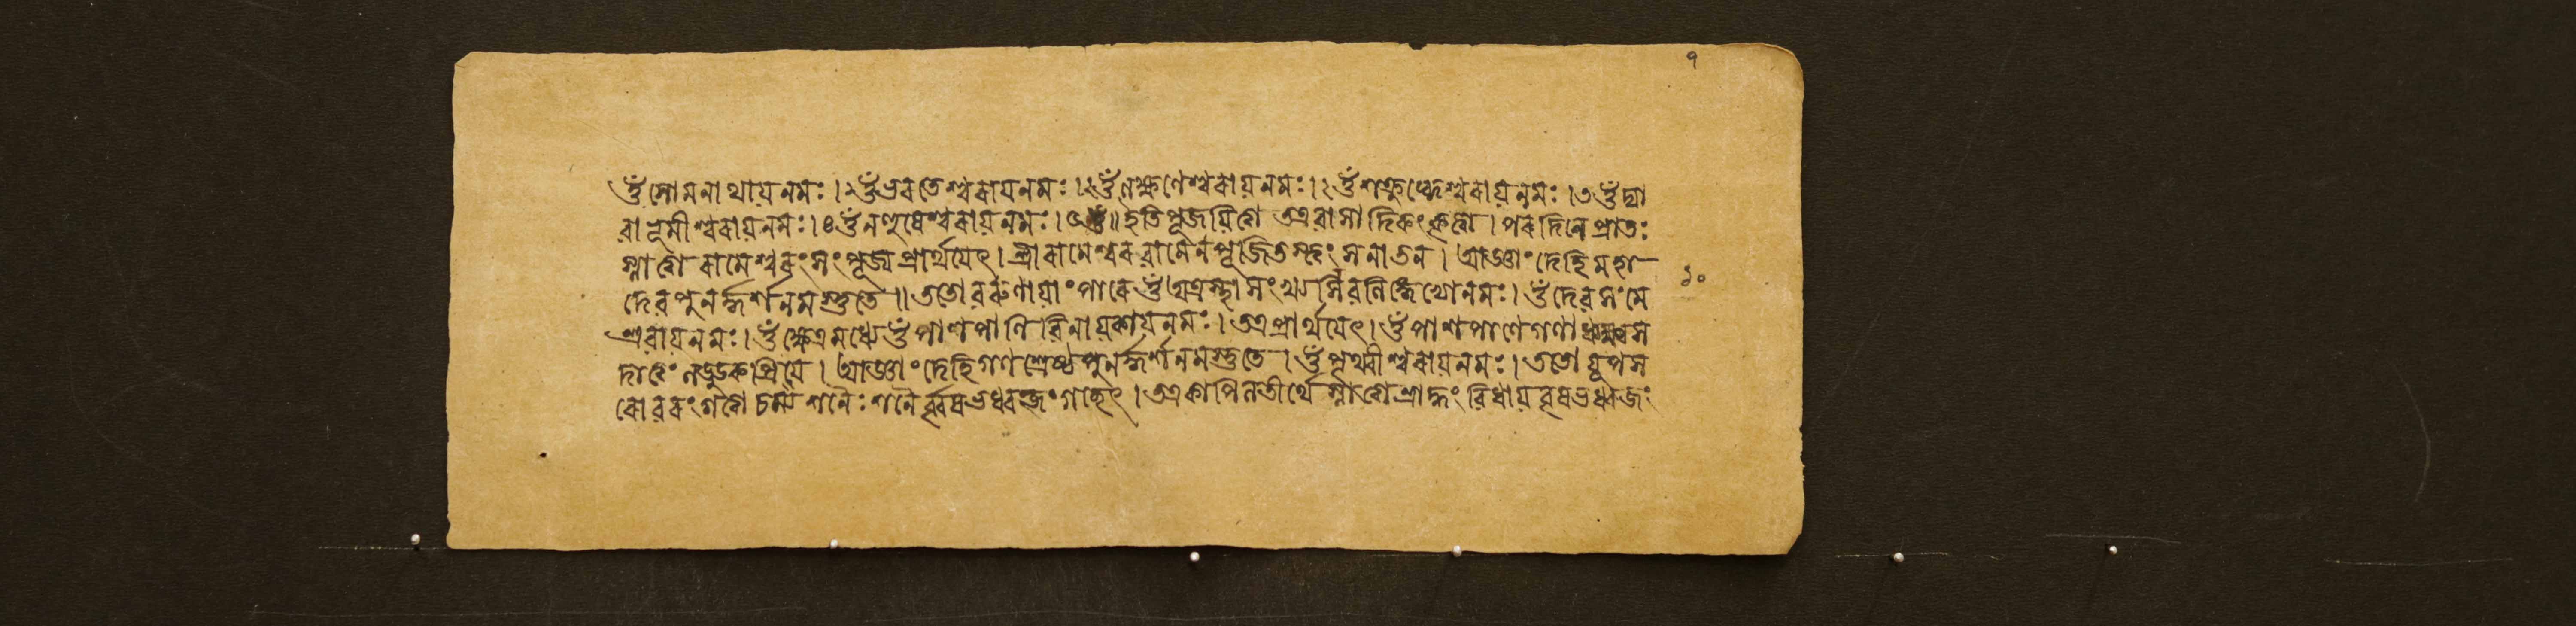 १
ওঁ সোমনাথায় নমঃ । ২ ওঁ ভরতেশ্বরায় নমঃ । ২ ওঁ লক্ষ্মণেশ্বরায় নমঃ । ২ ওঁ শত্রুঘ্নেশ্বরায় নমঃ । ৩ ওঁ দ্যা
বাভূমীশ্বরায় নমঃ । ৪ ওঁ নহুষেশ্বরায় নমঃ । ৫ ॥ ইতি পূজয়িত্বা তত্র বাসাদিকং কৃত্বা । পরদিনে প্রাতঃ
স্নাত্বা রামেশ্বরং সংপূজ্য প্রার্থয়েৎ । শ্রীরামেশ্বর রামেন পূজিতস্ত্বং সনাতন । আজ্ঞাং দেহি মহা
১০
দেব পুনর্দ্দর্শনমস্তুতে ॥ ততো বরুণায়াঃ পারে ওঁ অত্রস্থাসংখ্য নমঃ । ওঁ দেবসংঘে
শ্বরায় নমঃ । ওঁ ক্ষেত্রমধ্যে ওঁ পাশপাণি বিনায়কায় নমঃ । তত্র প্রার্থয়েৎ । ওঁ পাশপাণে গণাধ্যক্ষ স
লড্ডুকপ্রিয় । আজ্ঞাং দেহি গণশ্রেষ্ঠ পুনর্দ্দর্শনমস্তুতে । ওঁ পৃথ্বীশ্বরায় নমঃ । ততো যূপস
রোবরং গত্বা শনৈঃ শনৈর্বৃষভধ্বজং গচ্ছেৎ । তত্র কাপিলতীর্থে স্নাত্বা শ্রাদ্ধং বিধায় বৃষভধ্বজং